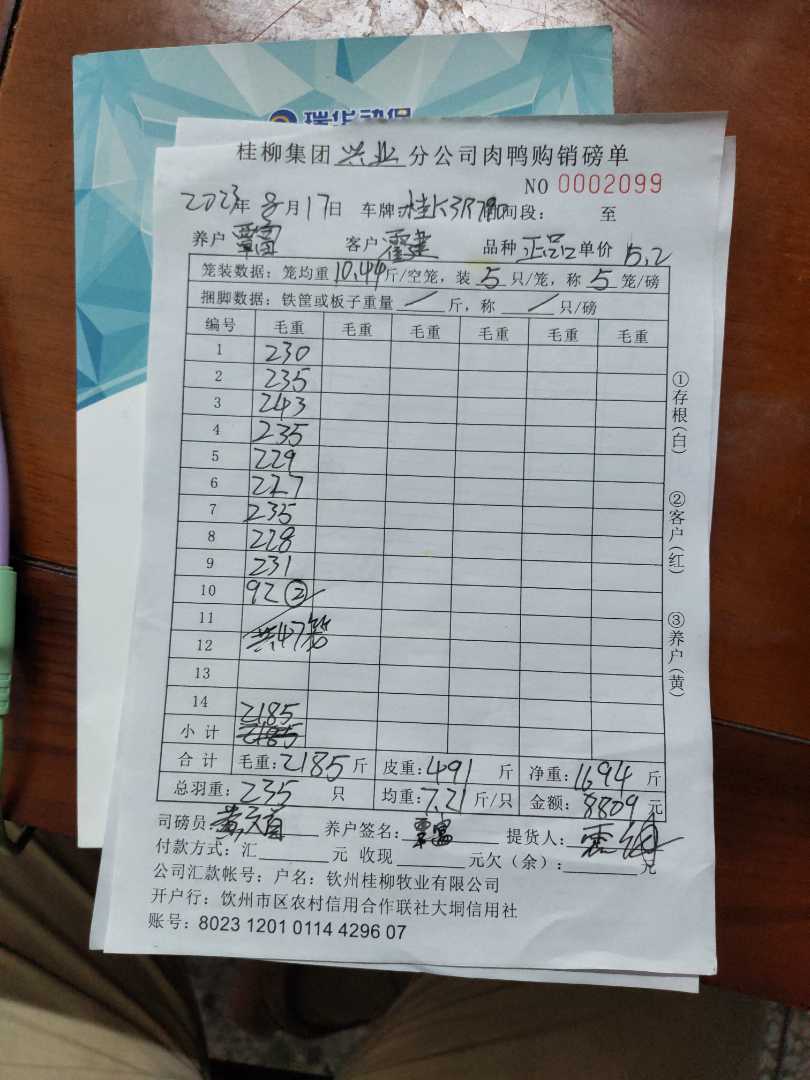 瑞华动保
桂柳集团 兴业 分公司肉鸭购销磅单
NO 0002099
2023年 8月17日 车牌: 桂K3R790 时间段: 至
养户 覃富 客户 品种 正品 单价 5.2
笼装数据: 笼均重 10.44 斤/空笼, 装 5 只/笼, 称 5 笼/磅
捆脚数据: 铁筐或板子重量 / 斤, 称 / 只/磅
编号 毛重 毛重 毛重 毛重 毛重 毛重
1 230
2 235
3 243
4 235
5 229
6 227
7 235
8 228
9 231
10 92 ②
11
12 共47笼
13
14 2185
小计 2185
合计 毛重: 2185 斤 皮重: 491 斤 净重: 1694 斤
总羽重: 235 只 均重: 7.21 斤/只 金额: 8809 元
司磅员: 养户签名: 覃富 提货人:
付款方式: 汇 元 收现 元欠（余）: 元
公司汇款帐号: 户名: 钦州桂柳牧业有限公司
开户行: 饮州市区农村信用合作联社大垌信用社
账号: 8023 1201 0114 4296 07
①存根(白)
②客户(红)
③养户(黄)